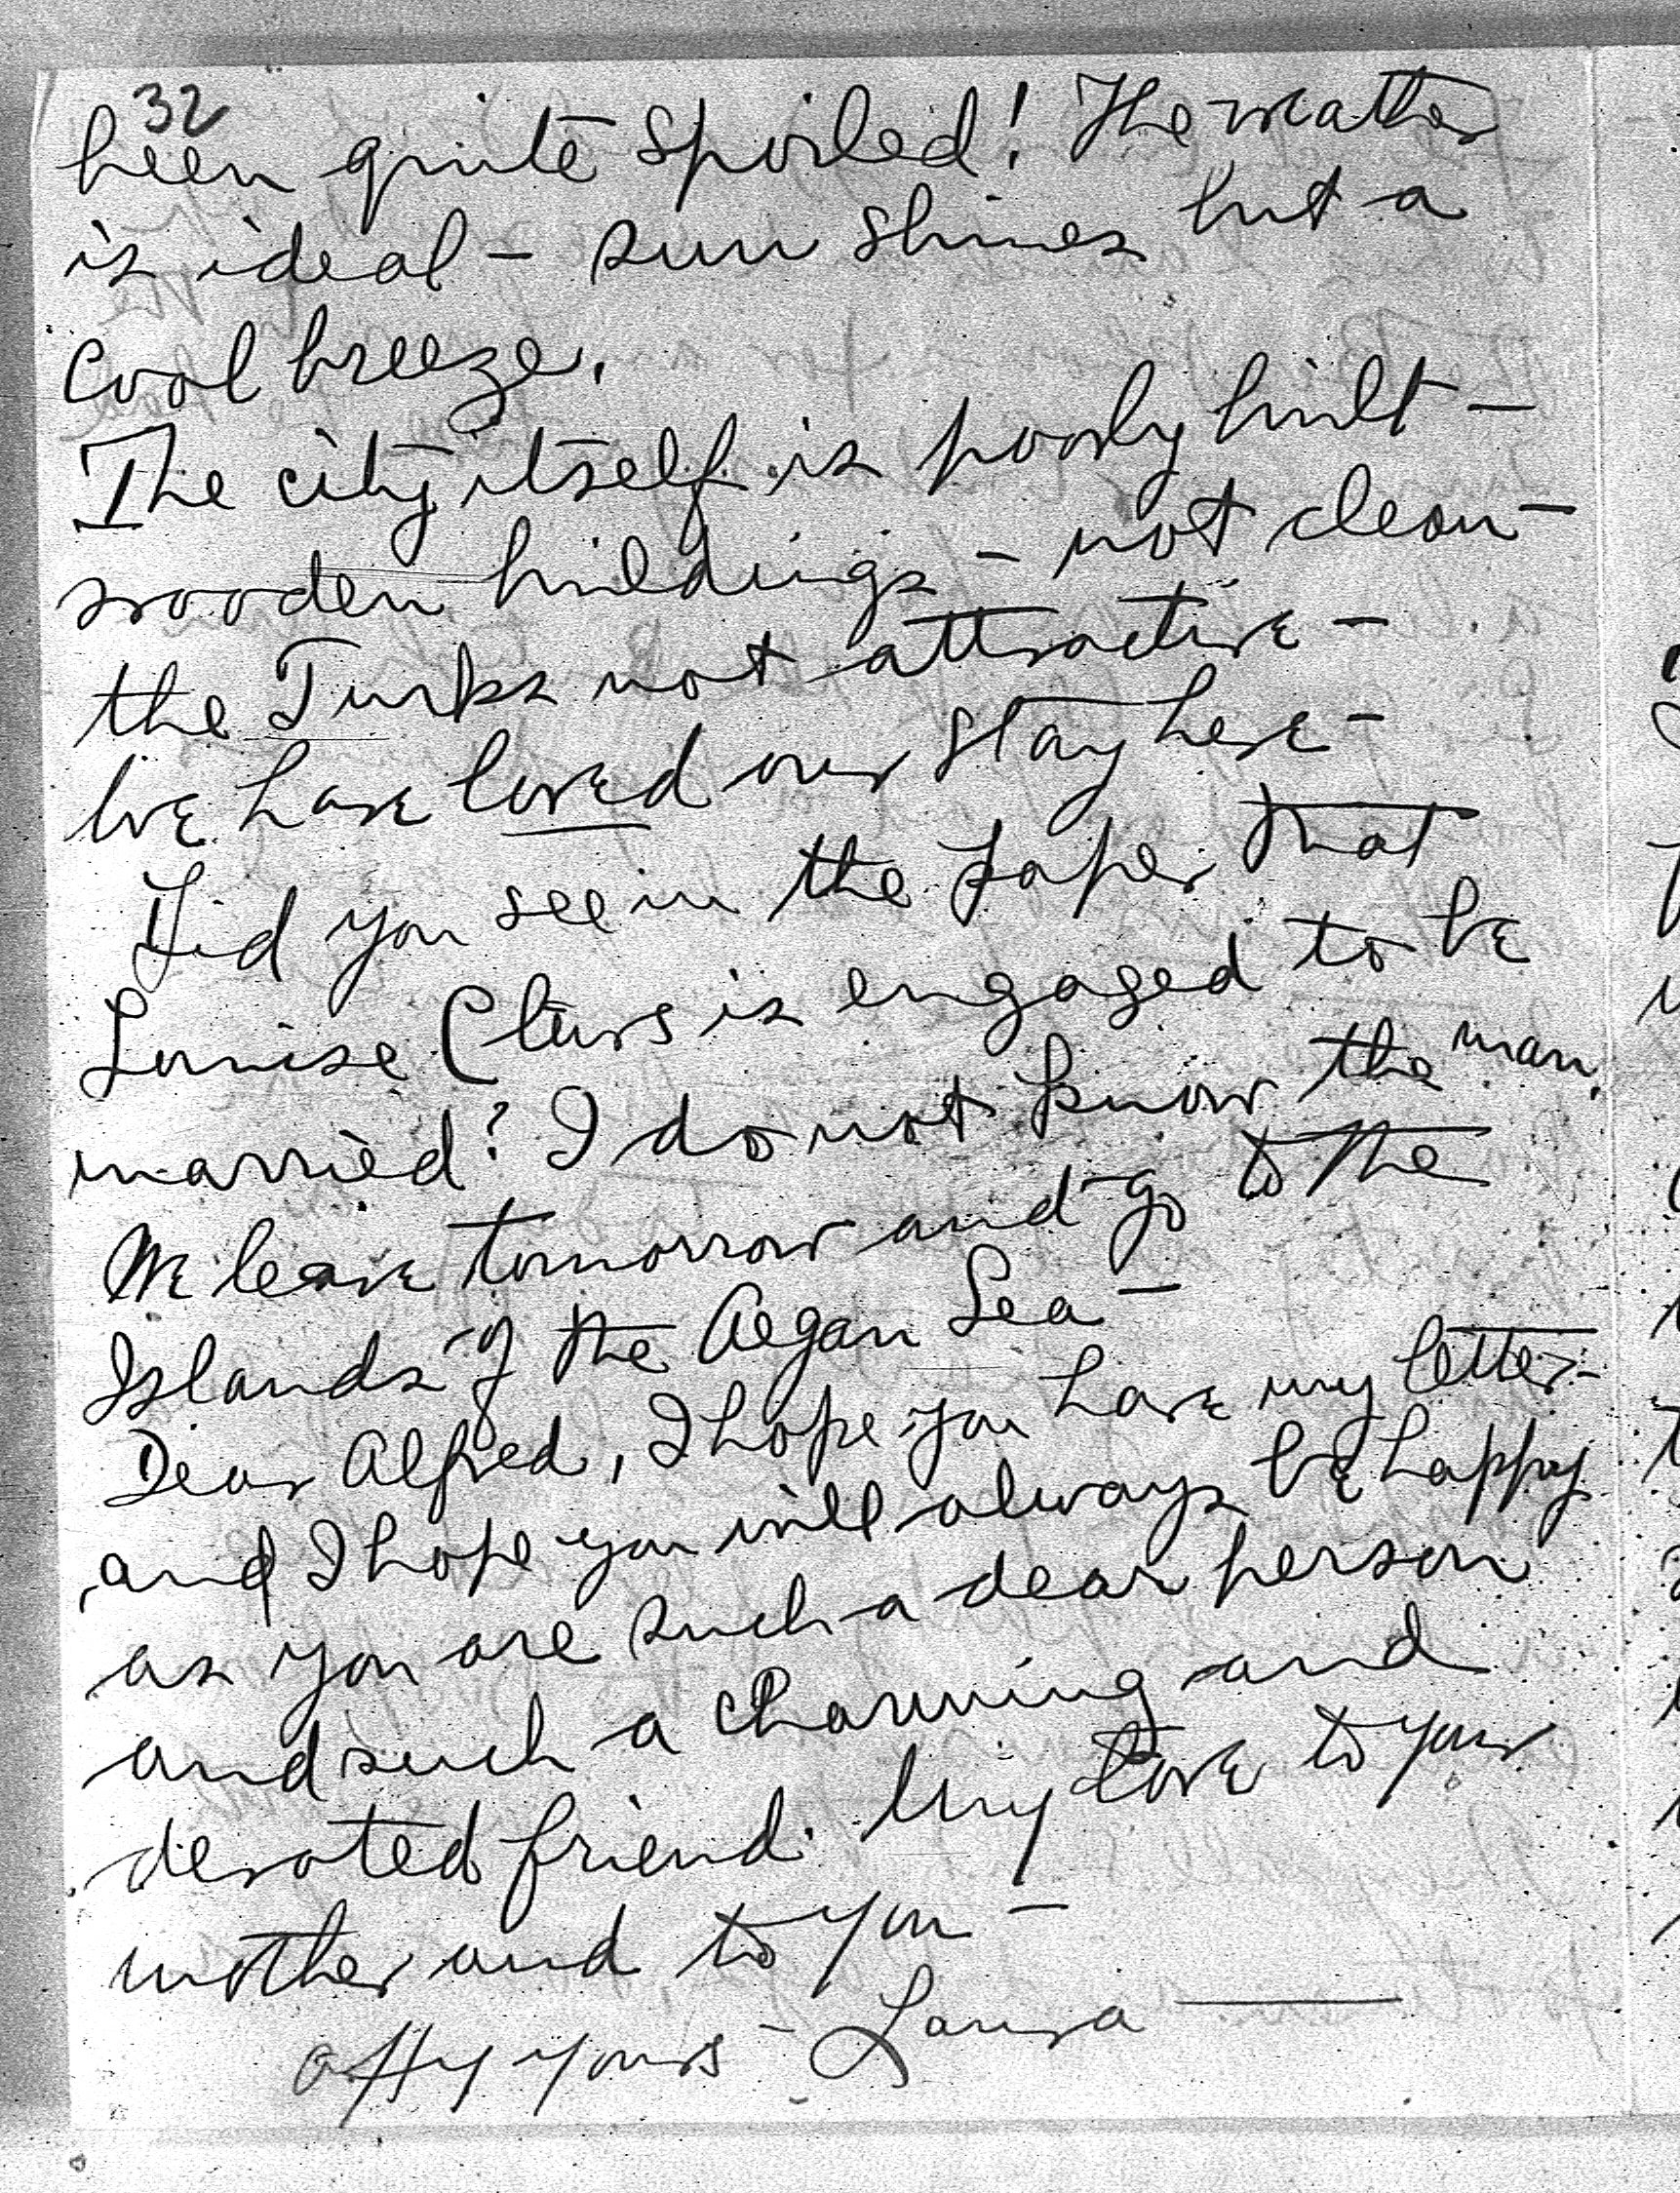 32
been quite spoiled! The weather
is ideal – sun shines but a
cool breeze.
The city itself is poorly built –
wooden buildings – not clean –
the Turks not attractive –
We have loved our stay here –
Did you see in the paper that
Louise is engaged to be
married? I do not know the man.
We leave tomorrow and go to the
Islands of the Aegan Sea –
Dear Alfred, I hope you have my letter –
and I hope you will always be happy
as you are such a dear person
and such a charming and
devoted friend. My love to your
mother and to you –
affy yours – Laura